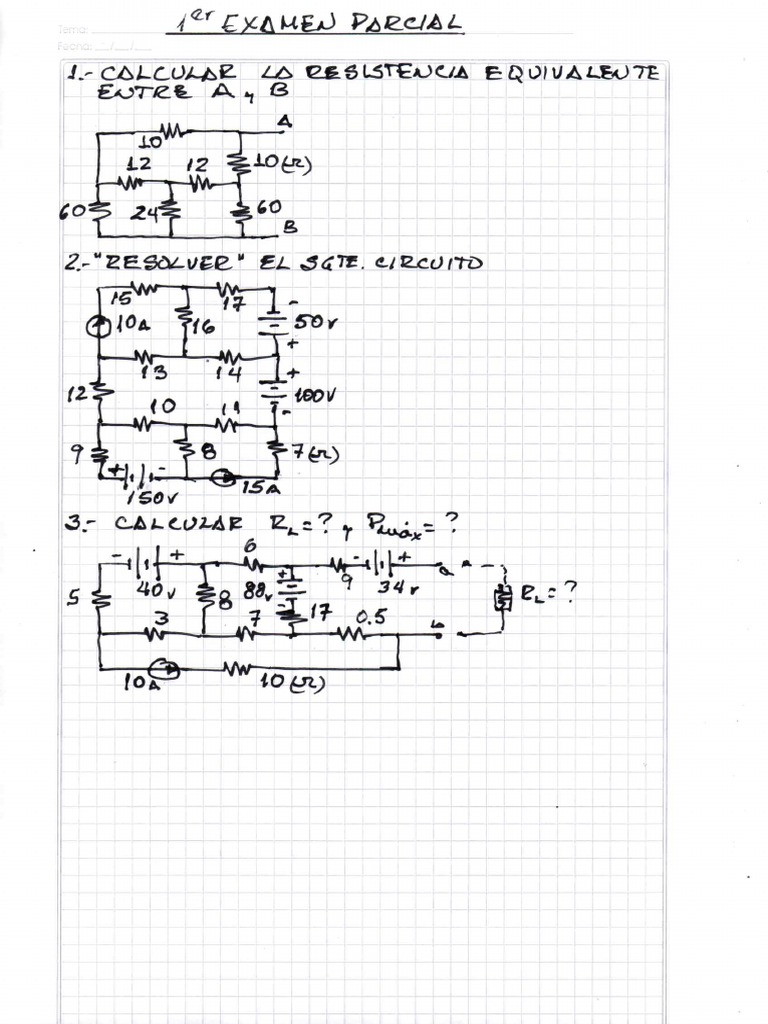 Tema:
Fecha: __/__/__
1er EXAMEN PARCIAL
1.- CALCULAR LA RESISTENCIA EQUIVALENTE
ENTRE A y B
A
10
12 12 10(Ω)
60 24 60
B
2.- "RESOLVER" EL SGTE. CIRCUITO
15 17 -
10A 16 50v
+
13 14 +
12 100v
10 11 -
9 8 7(Ω)
+ -
150v 15A
3.- CALCULAR RL=? y Pmáx=?
- + 6 - + a
40v + 9 34v
5 8 88v RL=?
- 17
3 7 0.5 b
10A 10(Ω)